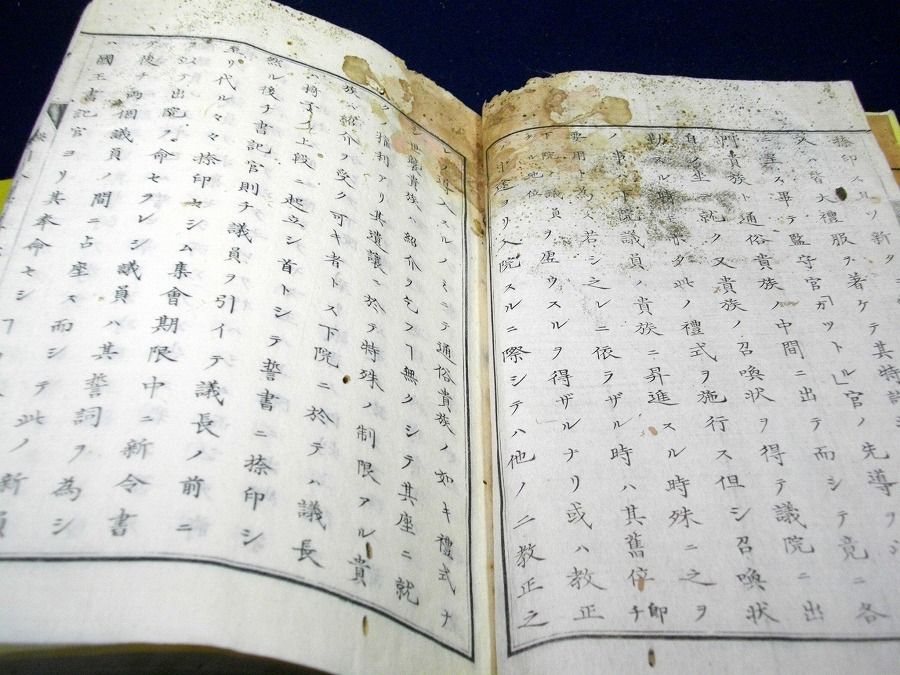 捺印ス
大禮服ヲ著ケテ其特許
事テ監守官「ガット」ル官ノ先導ヲ
門貴族ト通俗貴族ノ中間ニ出テ而シテ竟ニ各
自ノ座ニ就ク又貴族ノ召喚狀ヲ得テ議院ニ出
此ノ禮式ヲ施行ス但シ召喚狀
ノ事ハ下院議員ノ貴族ニ昇進スル時殊ニ之ヲ
要用トナス若シ之レニ依ラザル時ハ其舊位卽チ
下院ノ議員ヲ虚ウスルヲ得ザルナリ或ハ教正
中途ヨリ入院スルニ際シテハ他ノ二教正之
レヲ導入スルノミニテ通俗貴族ノ如キ禮式ナ
シ世襲貴族ハ紹介ヲ乞フヿ無クシテ其座ニ就
權利アリ其遺讓ニ於テ特殊ノ制限アル貴
族ハ紹介ヲ受ク可キ者トス下院ニ於テハ議長
ハ椅子ノ上段ニ起立シ首トシテ誓書ニ捺印シ
然ル後チ書記官則チ議員ヲ引イテ議長ノ前ニ
至リ代ル々々捺印セシム集會期限中ニ新令書
ヲ以テ出院ヲ命セラレシ議員ハ其誓詞ヲ為シ
後チ兩個議員ノ間ニ占座ス而シテ此ノ新員
ハ國王書記官ヨリ其奉命セシヿ